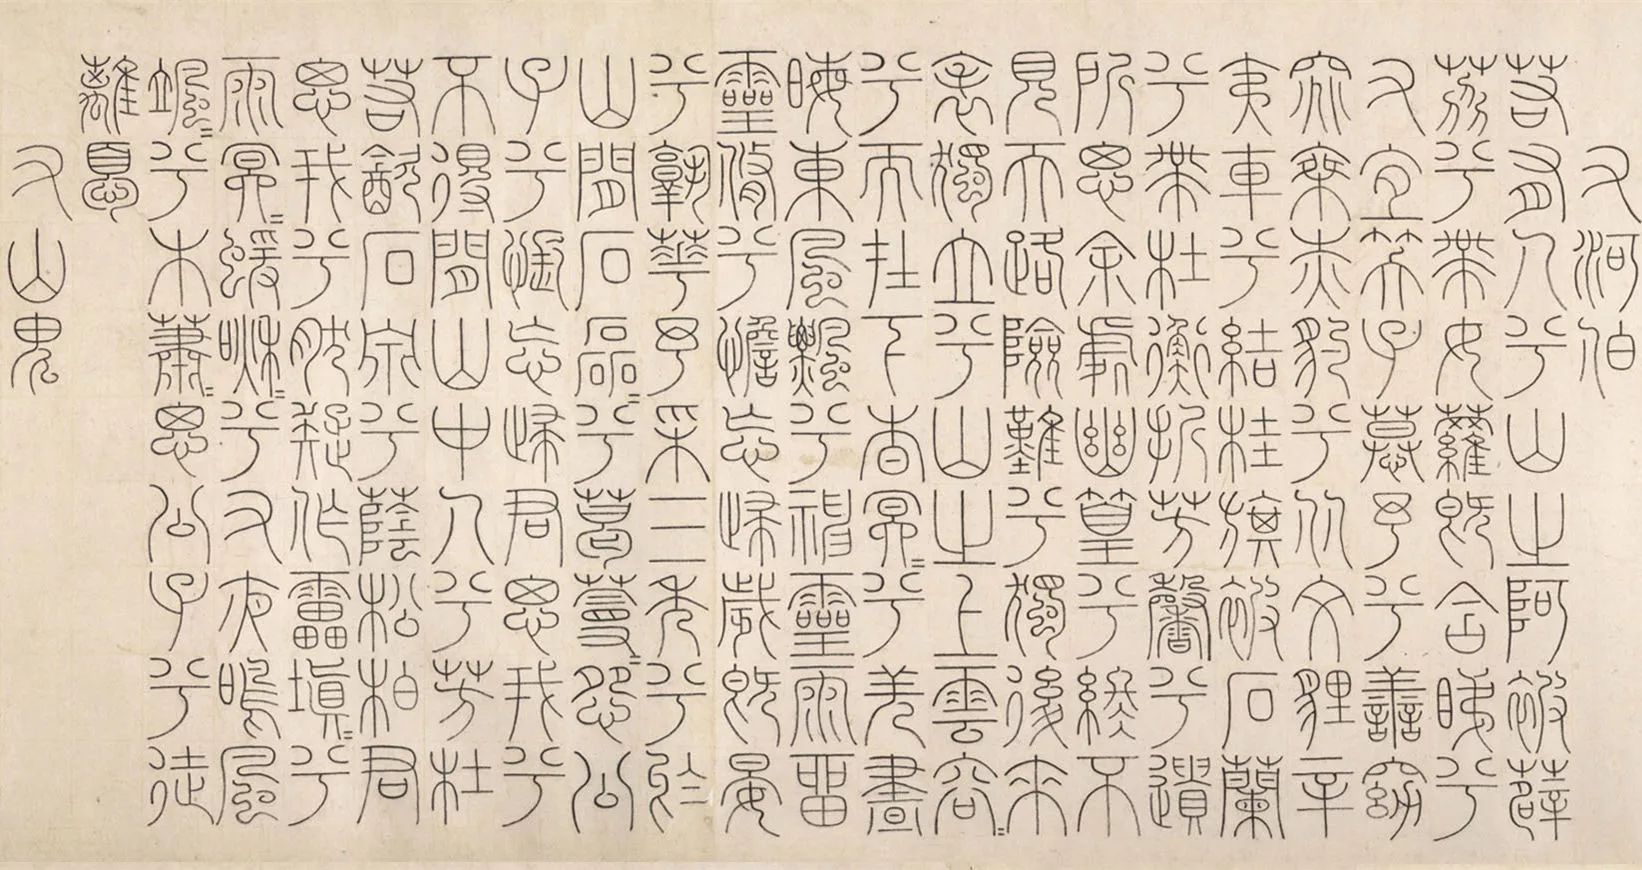 又河伯
若有人兮山之阿被薜
荔兮帶女蘿既含睇兮
又宜笑子慕予兮善窈
窕乘赤豹兮从文貍辛
夷車兮結桂旗被石蘭
兮帶杜衡折芳馨兮遺
所思余處幽篁兮終不
見天路險難兮獨後來
表獨立兮山之上雲容〻
兮而在下杳冥〻兮羌晝
晦東風飄兮神靈雨留
靈脩兮憺忘歸歲既晏
兮孰華予采三秀兮於
山間石磊〻兮葛蔓〻怨公
子兮悵忘歸君思我兮
不得閒山中人兮芳杜
若飲石泉兮蔭松柏君
思我兮然疑作靁填〻兮
雨冥〻猨啾〻兮又夜鳴風
颯〻兮木蕭〻思公子兮徒
離憂
又山鬼